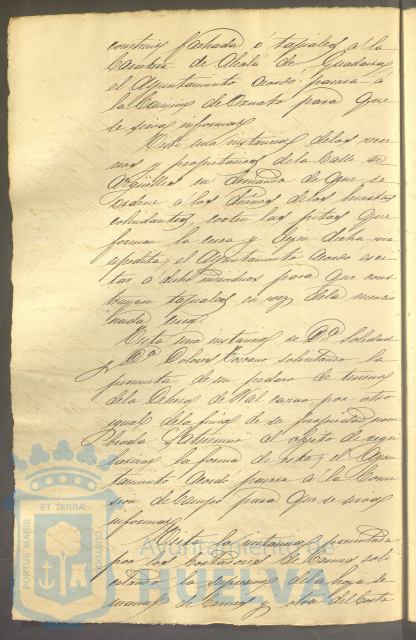 construir fachada ó tapiales á la
Carretera de Alcalá de Guadaira
el Ayuntamiento acordó pasara á
la Comision de Ornato para que
se sirva informar
Vista una instancia de los veci
nos y propietarios de la Calle de
Argüelles en demanda de que se
ordene a los dueños de los huertos
colindantes, corten las pitas que
forman la cerca y dejen dicha via
expedita, el Ayuntamiento acordó exci
tar á dichos individuos para que cons
truyan tapiales en vez de la mencio
nada cerca.
Vista una instancia de Dª Soledad
y Dª Dolores solicitando la
permuta de un pedazo de terreno
de la Dehesa de por otro
igual de la finca de su propiedad nom
brada al objeto de regu
larizar la forma de esta, el Ayun
tamiento acordó pasara á la Comi
sion de Campo para que se sirva
informar
Vista la instancia presentada
por los de Carnes soli
citando la supresion de la hoja
de Carnes y otra del Costo
PORTUS MARIS
ET TERRÆ
CUSTODIA
Ayuntamiento de
HUELVA